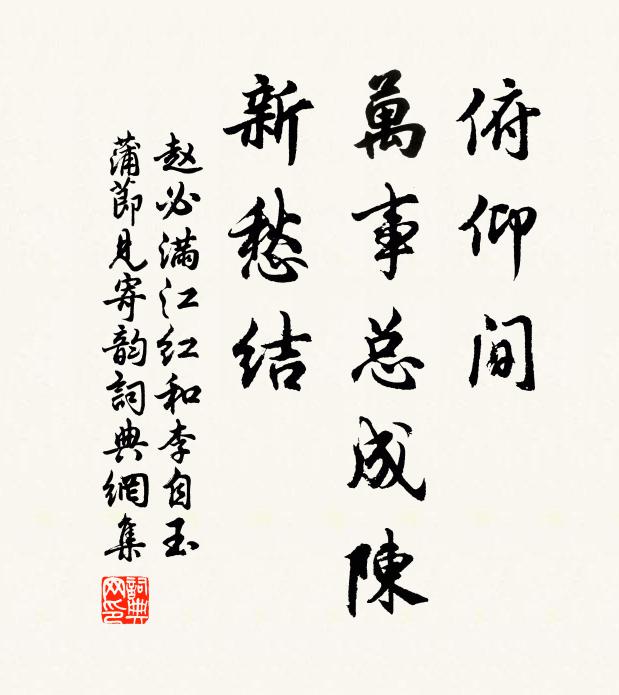 俯仰间
萬事总成陳
新愁结
赵必满江红和李自玉
蒲節见寄韵詞典網集
詞典网印